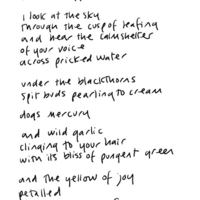 i look at the sky
through the cusp of leafing
and hear the calmshelter
of your voice
across pricked water
under the blackthorns
spit buds pearling to cream
dogs mercury
and wild garlic
clinging to your hair
with its bliss of pungent green
and the yellow of joy
petalled